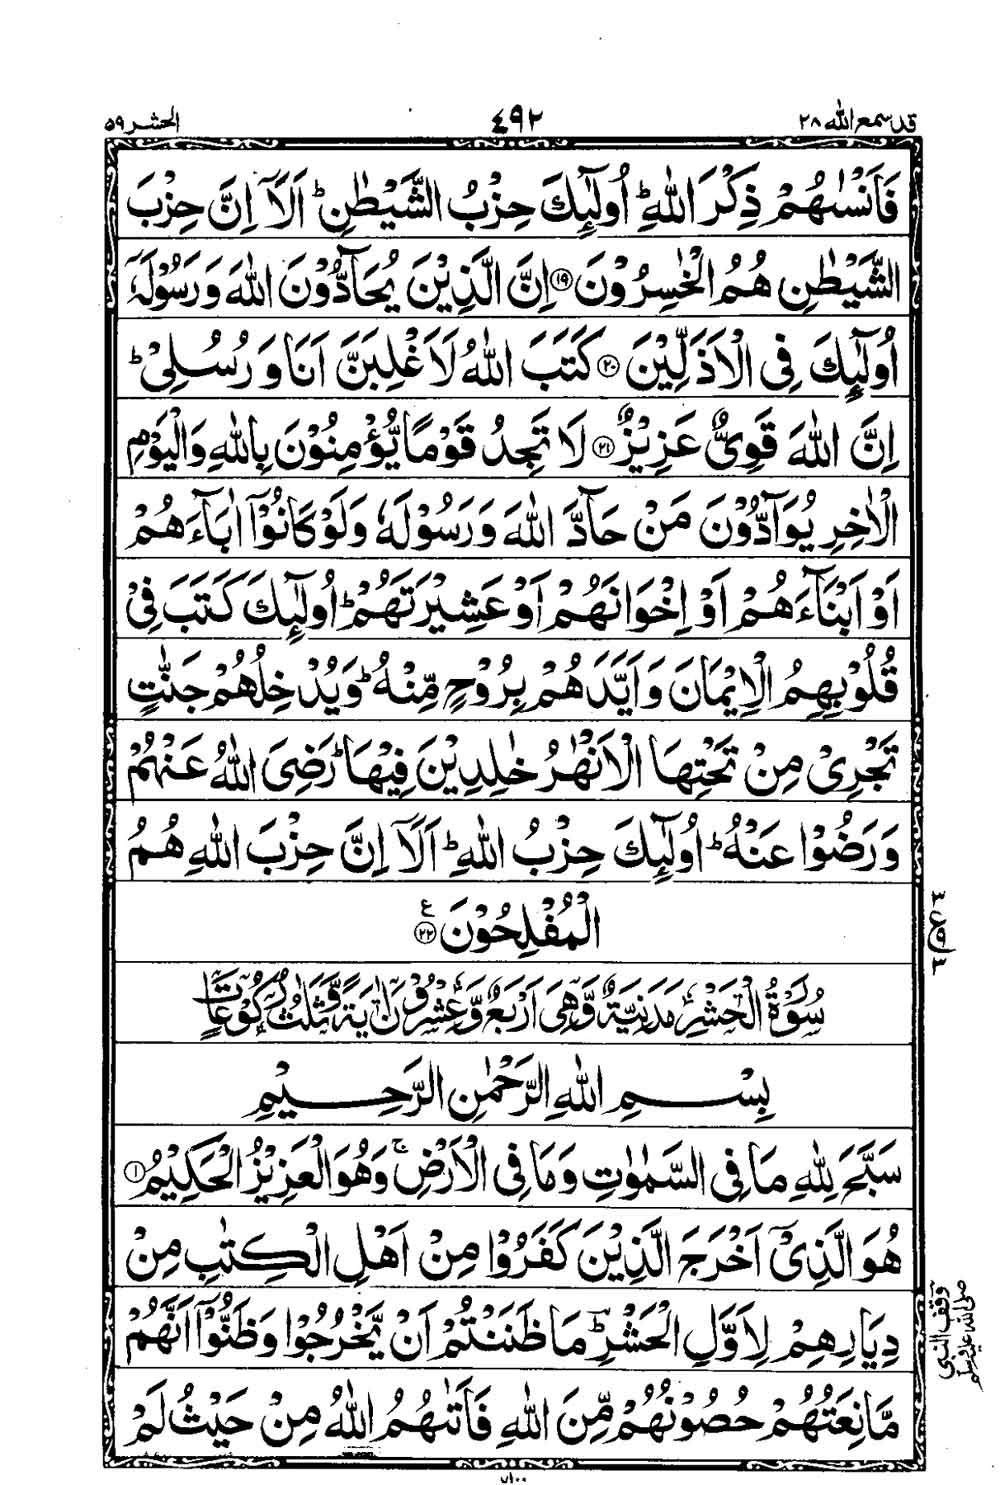 قد سمع الله ۲۸
٤٩٢
الحشر ۵۹
فَاَنْسٰىهُمْ ذِكْرَ اللّٰهِ ؕ اُولٰٓئِكَ حِزْبُ الشَّيْطٰنِ ؕ اَلَاۤ اِنَّ حِزْبَ
الشَّيْطٰنِ هُمُ الْخٰسِرُوْنَ ﴿۱۹﴾ اِنَّ الَّذِيْنَ يُحَآدُّوْنَ اللّٰهَ وَ رَسُوْلَهٗۤ
اُولٰٓئِكَ فِى الْاَذَلِّيْنَ ﴿۲۰﴾ كَتَبَ اللّٰهُ لَاَغْلِبَنَّ اَنَا وَ رُسُلِىْ ؕ
اِنَّ اللّٰهَ قَوِىٌّ عَزِيْزٌ ﴿۲۱﴾ لَا تَجِدُ قَوْمًا يُّؤْمِنُوْنَ بِاللّٰهِ وَ الْيَوْمِ
الْاٰخِرِ يُوَآدُّوْنَ مَنْ حَآدَّ اللّٰهَ وَ رَسُوْلَهٗ وَ لَوْ كَانُوْۤا اٰبَآءَهُمْ
اَوْ اَبْنَآءَهُمْ اَوْ اِخْوَانَهُمْ اَوْ عَشِيْرَتَهُمْ ؕ اُولٰٓئِكَ كَتَبَ فِىْ
قُلُوْبِهِمُ الْاِيْمَانَ وَ اَيَّدَهُمْ بِرُوْحٍ مِّنْهُ ؕ وَ يُدْخِلُهُمْ جَنّٰتٍ
تَجْرِىْ مِنْ تَحْتِهَا الْاَنْهٰرُ خٰلِدِيْنَ فِيْهَا ؕ رَضِىَ اللّٰهُ عَنْهُمْ
وَ رَضُوْا عَنْهُ ؕ اُولٰٓئِكَ حِزْبُ اللّٰهِ ؕ اَلَاۤ اِنَّ حِزْبَ اللّٰهِ هُمُ
الْمُفْلِحُوْنَ ﴿۲۲﴾ ع
سُوْرَةُ الْحَشْرِ مَدَنِيَّةٌ وَّهِىَ اَرْبَعٌ وَّعِشْرُوْنَ اٰيَةً وَّثَلٰثُ رُكُوْعَاتٍ
بِسْمِ اللّٰهِ الرَّحْمٰنِ الرَّحِيْمِ
سَبَّحَ لِلّٰهِ مَا فِى السَّمٰوٰتِ وَ مَا فِى الْاَرْضِ ۚ وَ هُوَ الْعَزِيْزُ الْحَكِيْمُ ﴿۱﴾
هُوَ الَّذِىْۤ اَخْرَجَ الَّذِيْنَ كَفَرُوْا مِنْ اَهْلِ الْكِتٰبِ مِنْ
دِيَارِهِمْ لِاَوَّلِ الْحَشْرِ ؕ مَا ظَنَنْتُمْ اَنْ يَّخْرُجُوْا وَ ظَنُّوْۤا اَنَّهُمْ
مَّانِعَتُهُمْ حُصُوْنُهُمْ مِّنَ اللّٰهِ فَاَتٰىهُمُ اللّٰهُ مِنْ حَيْثُ لَمْ
وقف النبى
صلى الله عليه وسلم